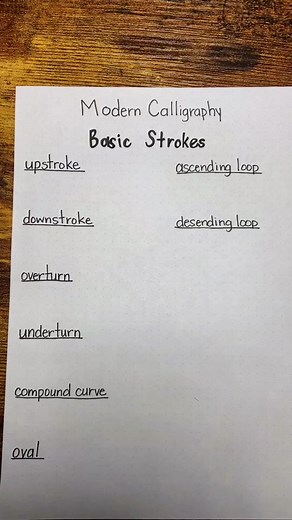 Modern Calligraphy
Basic Strokes
upstroke
downstroke
overturn
underturn
compound curve
oval
ascending loop
desending loop